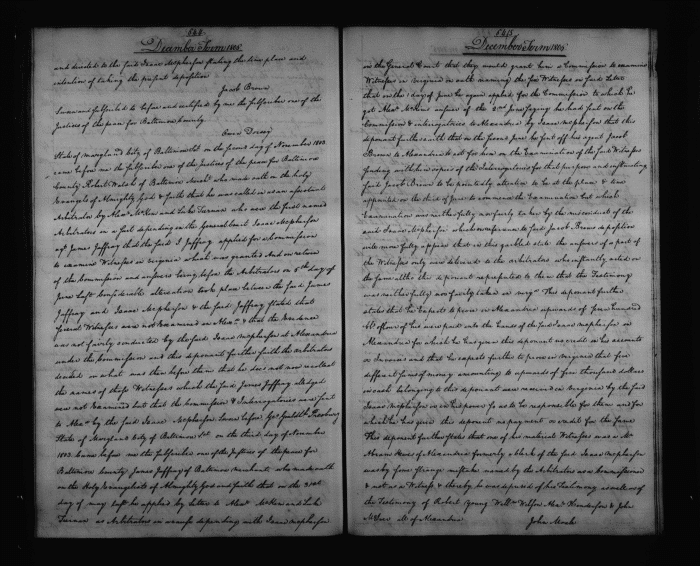 544
December Term 1805
and directed to the said Isaac McPherson stating the time place and
intention of taking the present deposition
Jacob Brown
Sworn and subscribed to before and certified by me the subscriber one of the
Justices of the peace for Baltimore County
Owen Dorsey
State of Maryland City of Baltimore Sct on the second day of November 1803
came before me the subscriber one of the Justices of the peace for Baltimore
County Robert Walsh of Baltimore Mercht who made oath on the holy
Evangels of Almighty God & saith that he was called in as an assistant
Arbitrator by Alexr McKim and Luke Tiernan who were the first named
Arbitrators in a suit depending in the General Court Isaac McPherson
agt James Jaffray that the said J Jaffray applied for a Commission
to examine Witnesses in Virginia which was granted And on return
of the Commission and answers being before the Arbitrators on 8th day of
June last Considerable altercation took place between the said James
Jaffray and Isaac McPherson & the said Jaffray stated that
several Witnesses were not Examined in Alexa & that the business
was not fairly conducted by the said Isaac McPherson at Alexandria
under the Commission and this deponent further saith the arbitrators
decided on what was then before them that he does not now recollect
the names of those Witnesses which the said James Jaffray alledged
were not Examined but that the Commission & Interrogatories was sent
to Alexa by the said Isaac McPherson Sworn before Geo
State of Maryland City of Baltimore Sct on the third day of November
1803 Came before me the subscriber one of the Justices of the peace for
Baltimore County James Jaffray of Baltimore Merchant who made oath
on the Holy Evangelists of Almighty God and saith that on the 31st
day of may last he applied by letter to Alexr McKim and Luke
Tiernan as Arbitrators in a cause depending with Isaac McPherson
545
December Term 1805
in the General Court that they would grant him a Commission to examine
Witnesses in Virginia in Order naming the Witnesses in said Letter
that on the 1 day of June he again applied for the Commission to which he
got Alexr McKims answer of the 2nd June saying he had sent on the
Commission & interrogatories to Alexandria by Isaac McPherson that this
deponent further saith that on the second June he sent off his agent Jacob
Brown to Alexandria to act for him in the Examination of the said Witnesses
sending with him copies of the Interrogatories for that purpose and instructing
said Jacob Brown to be pointedly attentive to be at the place & time
appointed on the third of June to commence the Examination but which
Examination was neither fully nor fairly taken by the misconduct of the
said Isaac McPherson which will appear in said Jacob Browns deposition
will more fully appear that in this garbled state the answers of a part of
the Witnesses only were delivered to the arbitrators who instantly acted on
the same altho this deponent represented to them that the Testimony
was neither fully nor fairly taken in Virga This deponent further
states that he expects to prove in Alexandria upwards of five Hundred
dollars of his were paid into the hands of the said Isaac McPherson in
Alexandria for which he has given this deponent no credit in his accounts
or Invoice and that he expects further to prove in Virginia that five
different sums of money amounting to upwards of five thousand dollars
in cash belonging to this deponent were received in Virginia by the said
Isaac McPherson or in his power so as to be responsible for them and for
which he has given this deponent no payment or credit for the same
This deponent further states that one of his material Witnesses was a Mr
Abram Hewes of Alexandria formerly a Clerk of the said Isaac McPherson
was by some strange mistake named by the Arbitrators as a Commissioner
& not as a Witness & thereby he was deprived of his Testimony as well as of
the Testimony of Robert Young Willm Wilson Alexr Henderson & John
McIver all of Alexandria
John Mach